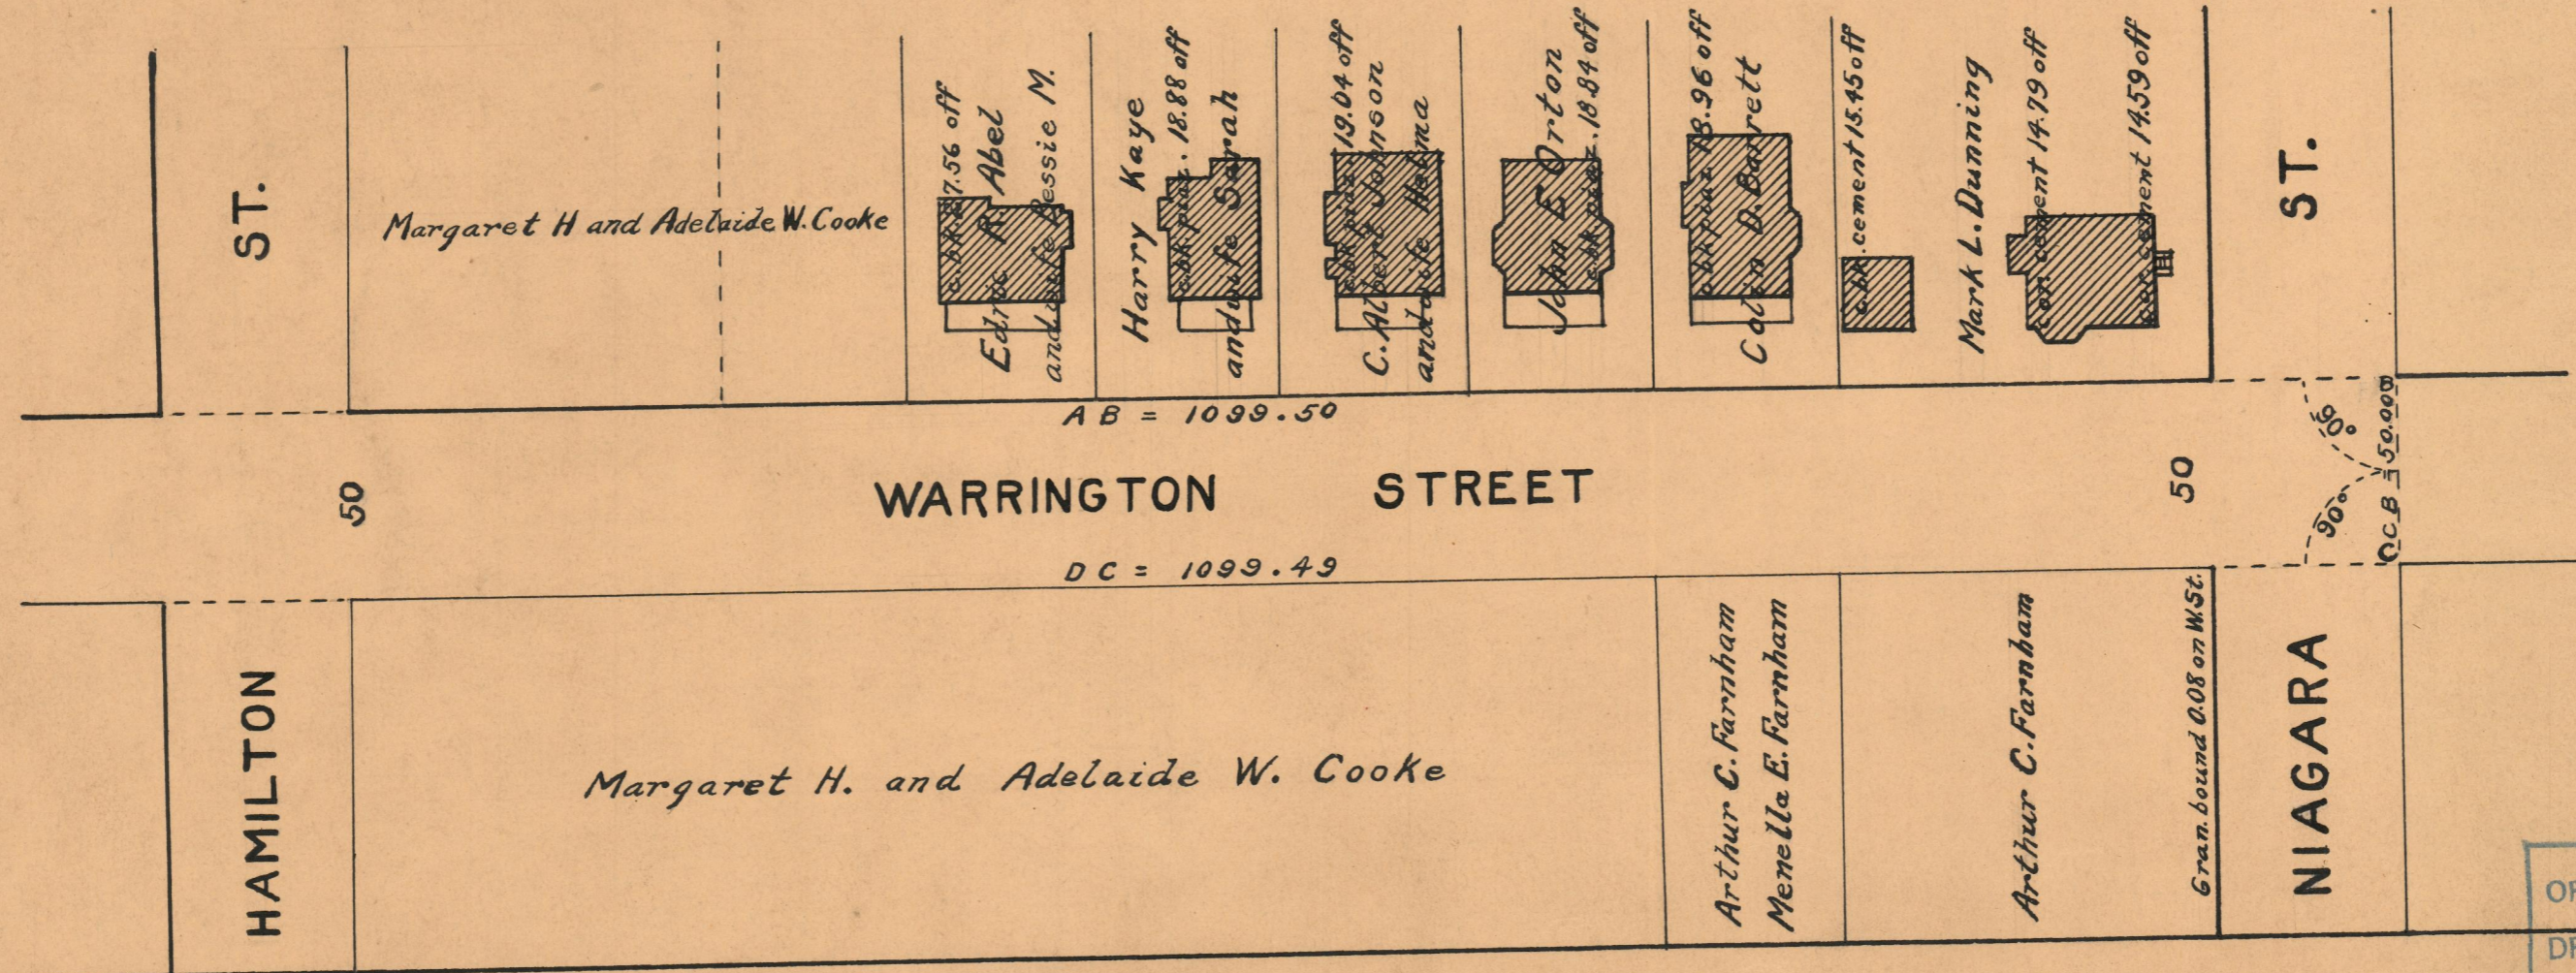 ST.
Margaret H and Adelaide W. Cooke
c. bk. 27.56 off
Edric R. Abel
and wife Bessie M.
Harry Kaye
c.bk.piaz. 18.88 off
and wife Sarah
c.bk piaz. 19.04 off
C. Albert Johnson
and wife Helma
John E Orton
c.bk.piaz. 18.84 off
c.bk piaz 18.96 off
Colin D. Barrett
c.bk. cement 15.45 off
Mark L. Dunning
cor. cement 14.79 off
cor. cement 14.59 off
ST.
AB = 1099.50
50
WARRINGTON STREET
50
90°
90°
CB = 50.00 B
DC = 1099.49
HAMILTON
Margaret H. and Adelaide W. Cooke
Arthur C. Farnham
Menella E. Farnham
Arthur C. Farnham
Gran. bound 0.08 on W.St.
NIAGARA